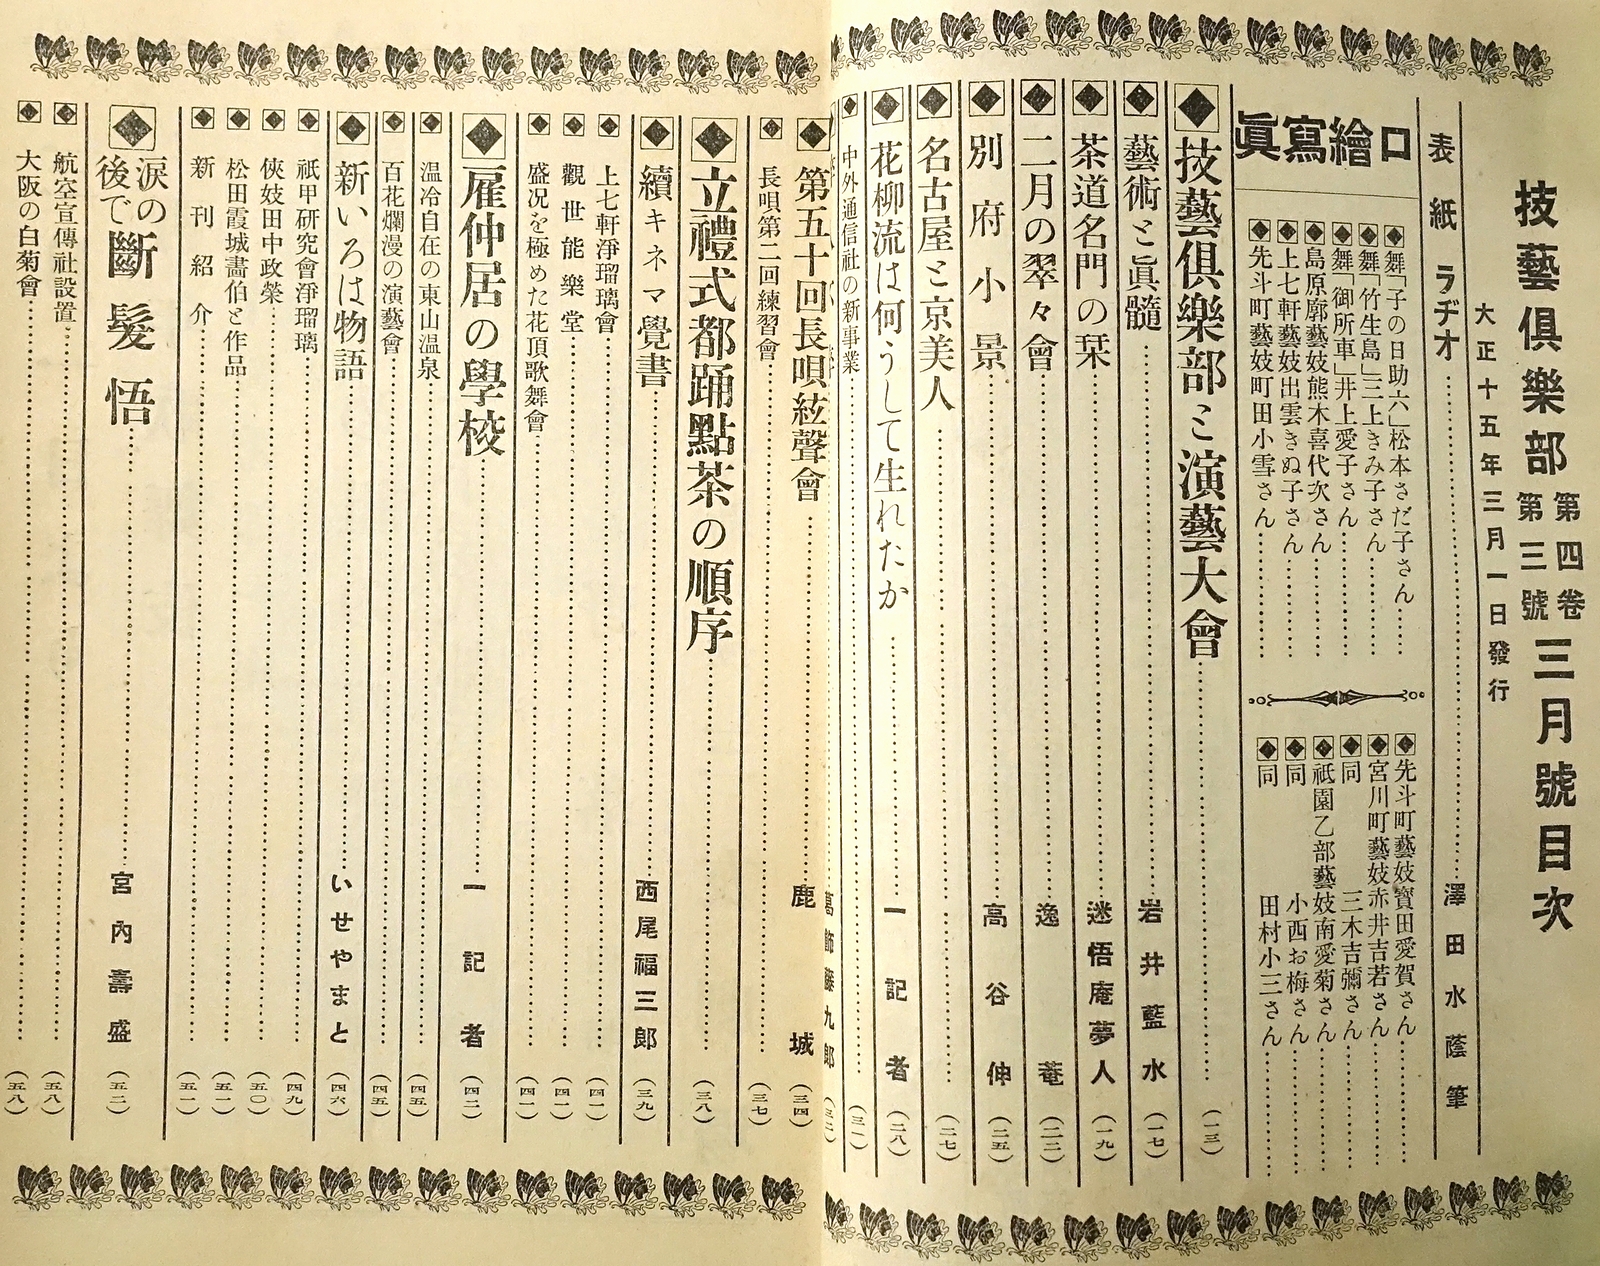 技藝俱樂部 第四卷 第三號 三月號目次
大正十五年三月一日發行
表紙 ラヂオ 澤田水蔭筆
口繪寫眞
舞「子の日助六」松本さだ子さん
舞「竹生島」三上きみ子さん
舞「御所車」井上愛子さん
島原廓藝妓熊木喜代次さん
上七軒藝妓出雲きぬ子さん
先斗町藝妓町田小雪さん
先斗町藝妓寶田愛賀さん
宮川町藝妓赤井吉若さん
同 三木吉彌さん
祇園乙部藝妓南愛菊さん
同 小西お梅さん
同 田村小三さん
技藝俱樂部と演藝大會 (一三)
藝術と眞髓 岩井藍水 (一七)
茶道名門の栞 迷悟庵夢人 (一九)
二月の翠々會 逸菴 (二二)
別府小景 高谷伸 (二五)
名古屋と京美人 (二七)
花柳流は何うして生れたか 一記者 (二八)
中外通信社の新事業 (三一)
葛飾藤九郎
第五十回長唄絃聲會 鹿城 (三四)
長唄第二回練習會 (三七)
立禮式都踊點茶の順序 (三八)
續キネマ覺書 西尾福三郎 (三九)
上七軒淨瑠璃會 (四一)
觀世能樂堂 (四一)
盛况を極めた花頂歌舞會 (四一)
雇仲居の學校 一記者 (四二)
温冷自在の東山温泉 (四五)
百花爛漫の演藝會 (四五)
新いろは物語 いせやまと (四六)
祇甲研究會淨瑠璃 (四九)
俠妓田中政榮 (五〇)
松田霞城畵伯と作品 (五一)
新刊紹介 (五一)
淚の後で斷髮悟 宮內壽盛 (五二)
航空宣傳社設置 (五八)
大阪の白菊會 (五八)